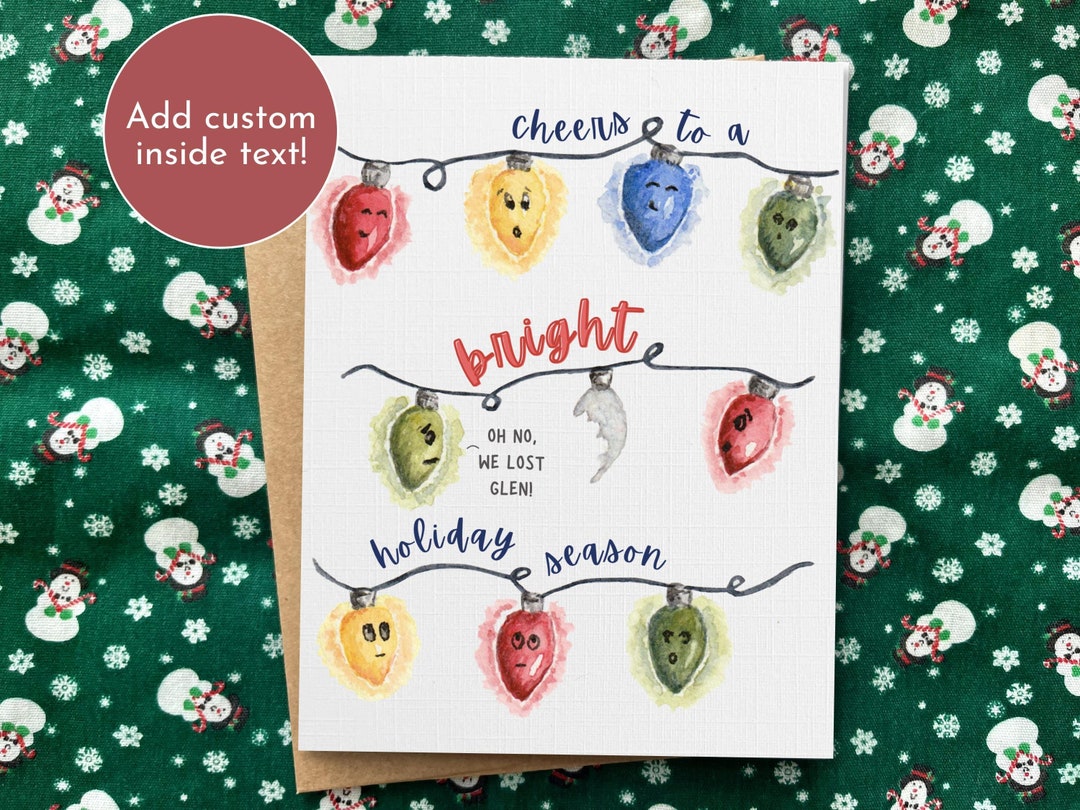 Add custom
inside text!
cheers to a
bright
OH NO,
WE LOST
GLEN!
holiday season